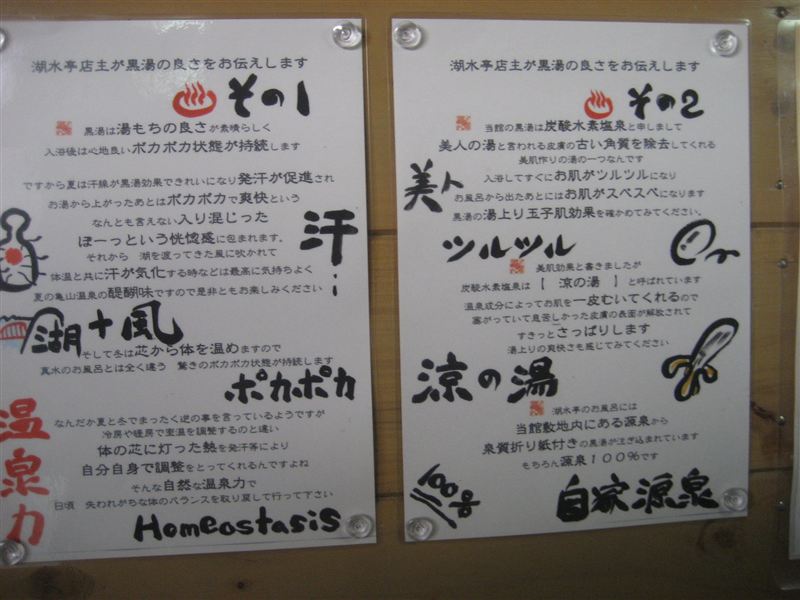 湖水亭店主が黒湯の良さをお伝えします
♨その1
黒湯は湯もちの良さが素晴らしく
入浴後は心地良いポカポカ状態が持続します
ですから夏は汗線が黒湯効果できれいになり発汗が促進され
お湯から上がったあとはポカポカで爽快という
なんとも言えない入り混じった
ぼーっという恍惚感に包まれます。
汗
それから 湖を渡ってきた風に吹かれて
体温と共に汗が気化する時などは最高に気持ちよく
夏の亀山温泉の醍醐味ですので是非ともお楽しみください
湖+風
そして冬は芯から体を温めますので
真水のお風呂とは全く違う 驚きのポカポカ状態が持続します
ポカポカ
なんだか夏と冬でまったく逆の事を言っているようですが
冷房や暖房で室温を調整するのと違い
体の芯に灯った熱を発汗等により
自分自身で調整をとってくれるんですよね
そんな自然な温泉力で
日頃 失われがちな体のバランスを取り戻して行って下さい
温泉力
Homeostasis
湖水亭店主が黒湯の良さをお伝えします
♨その2
当館の黒湯は炭酸水素塩泉と申しまして
美人の湯と言われる皮膚の古い角質を除去してくれる
美肌作りの湯の一つなんです
美人
入浴してすぐにお肌がツルツルになり
お風呂から出たあとにはお肌がスベスベになります
黒湯の湯上り玉子肌効果を確かめてみてください。
ツルツル
美肌効果と書きましたが
炭酸水素塩泉は【 涼の湯 】と呼ばれています
温泉成分によってお肌を一皮むいてくれるので
塞がっていて息苦しかった皮膚の表面が解放されて
すきっとさっぱりします
湯上りの爽快さも感じてみてください
涼の湯
湖水亭のお風呂には
当館敷地内にある源泉から
泉質折り紙付きの黒湯が注ぎ込まれています
もちろん源泉100%です
100%
自家源泉